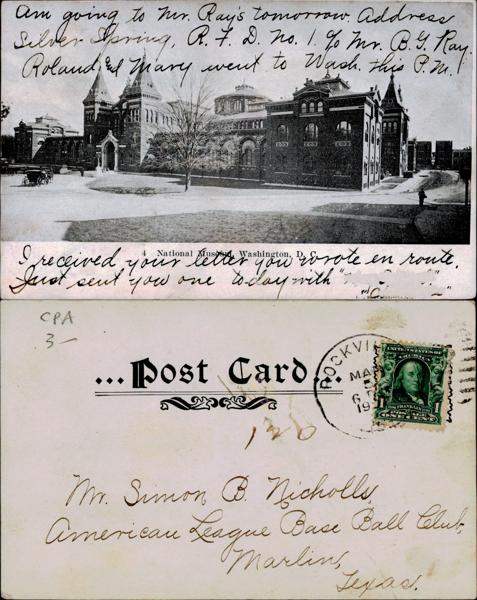 Am going to Mr. Ray's tomorrow. Address
Silver Spring, R. F. D. No. 1 % Mr. B. G. Ray.
Roland & Mary went to Wash. this P.M.
4 National Museum, Washington, D. C.
I received your letter you wrote en route.
Just sent you one today with "
CPA
3-
...Post Card...
ROCKVI
MA
6
19
UNITED STATES OF AMERICA
FRANKLIN
POSTAGE
1 ONE CENT 1
120
Mr. Simon B. Nicholls,
American League Base Ball Club,
Marlin,
Texas.